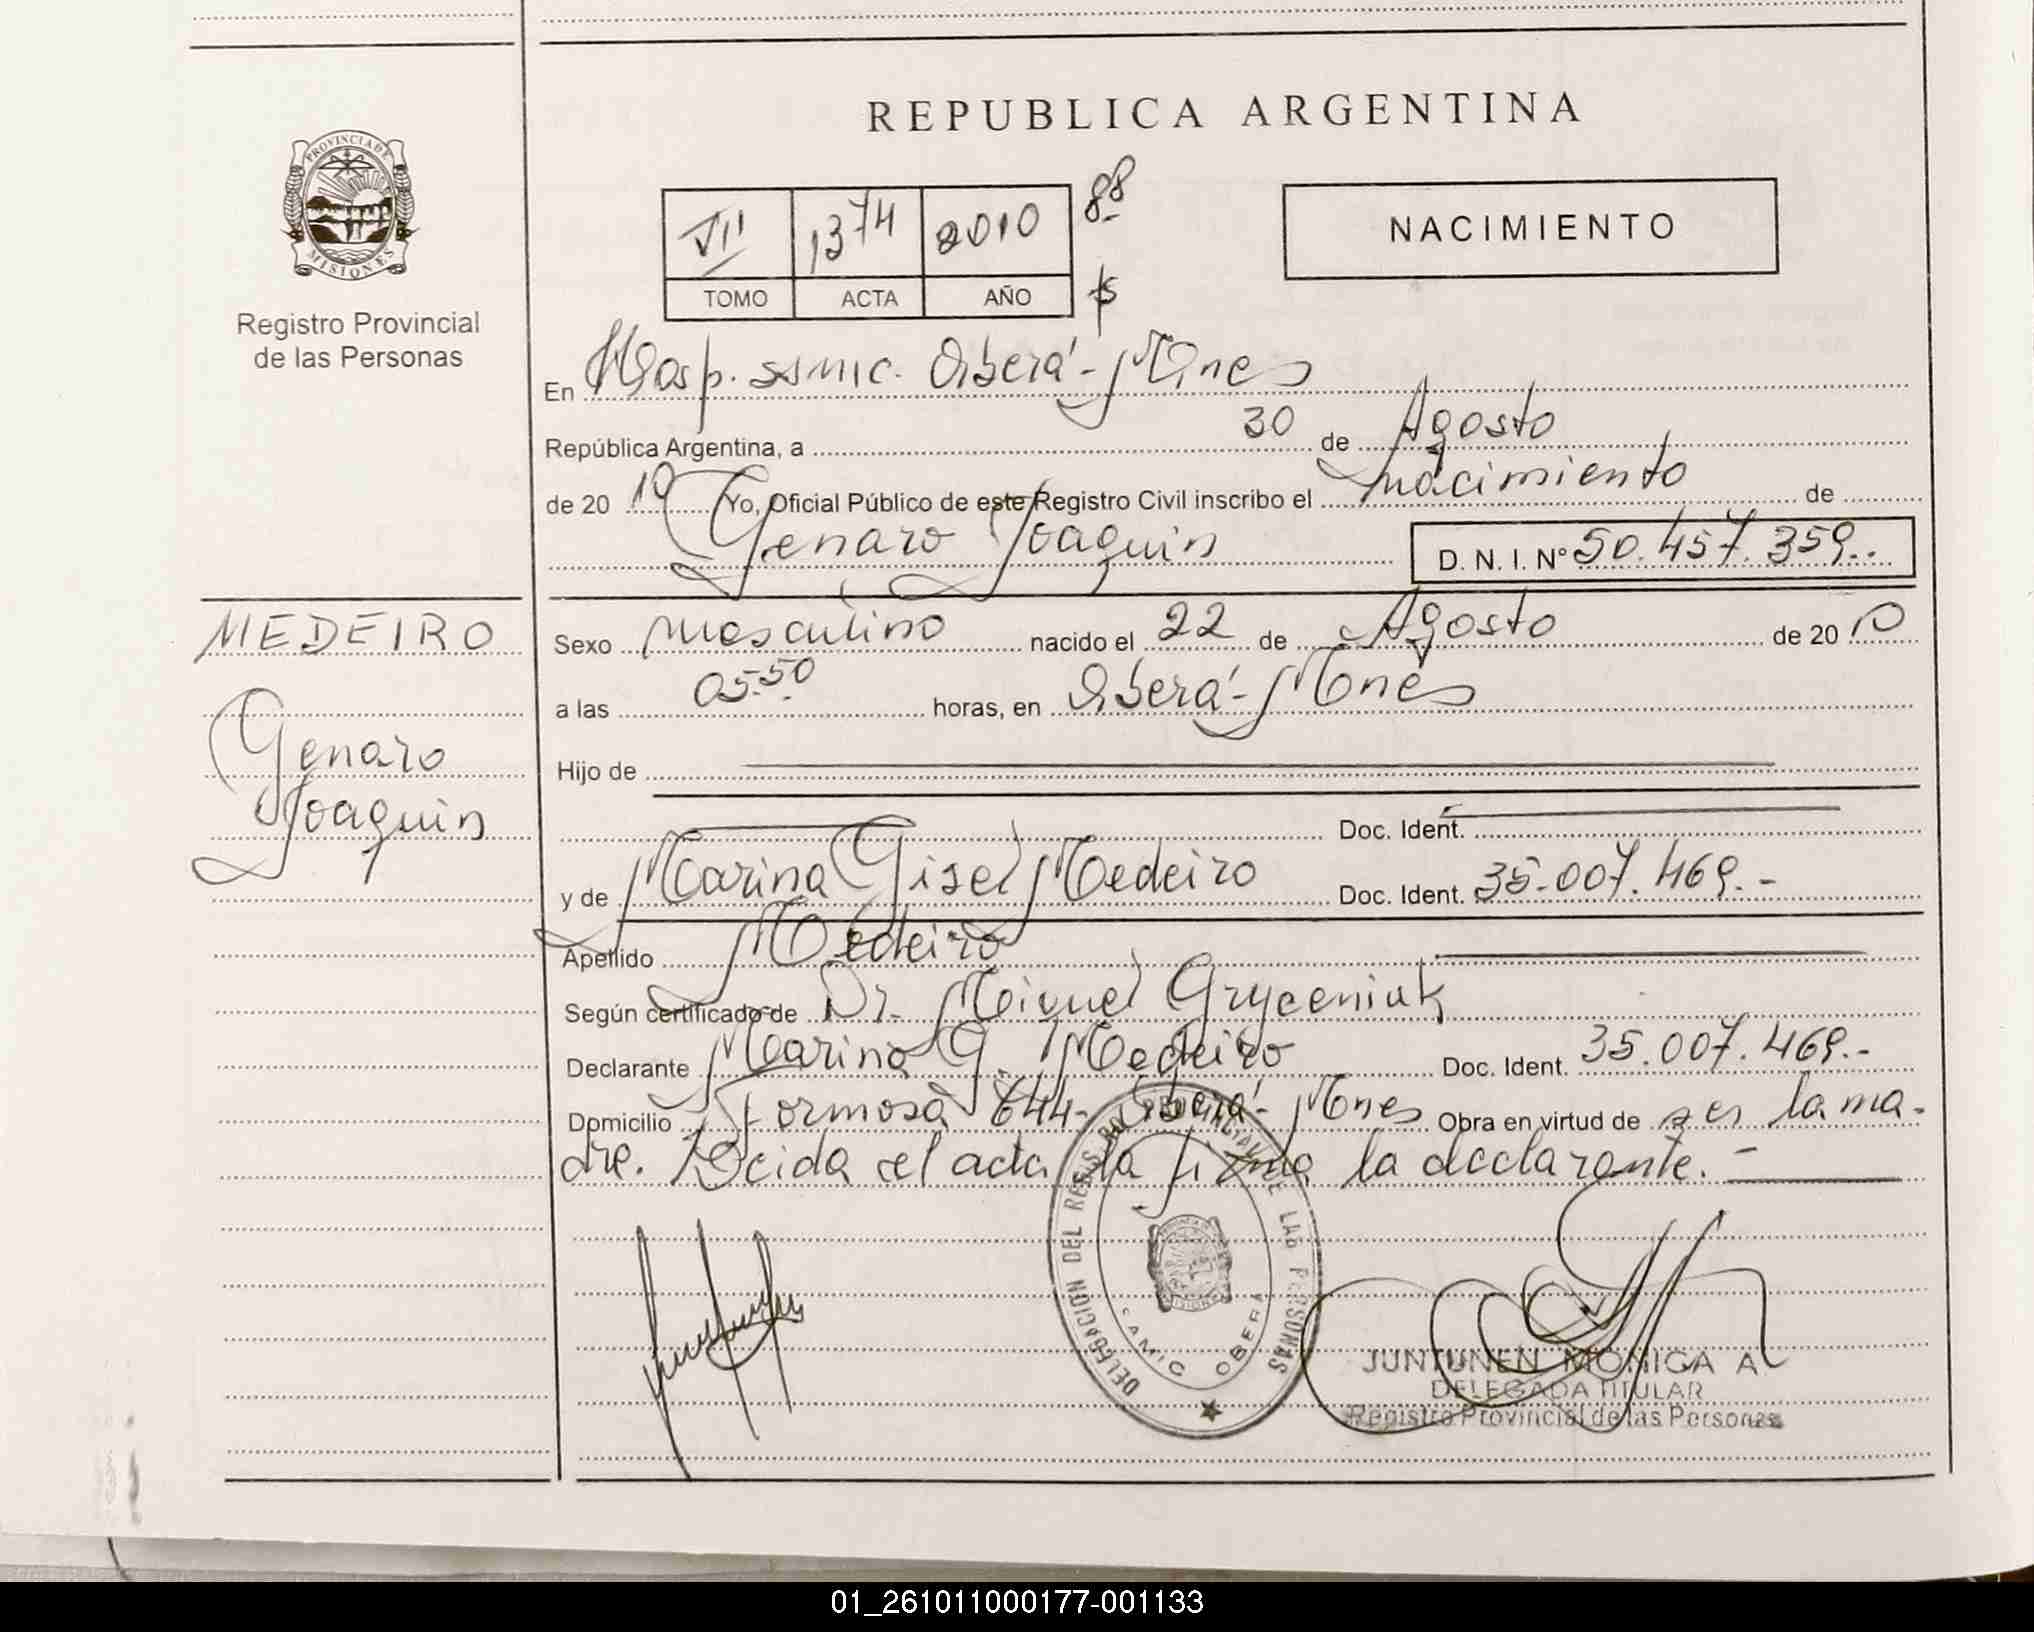 REPUBLICA ARGENTINA
PROVINCIA DE
MISIONES
Registro Provincial
de las Personas
VII 1374 2010 88
TOMO ACTA AÑO
NACIMIENTO
En Hosp. SAMIC. Oberá - Mnes
República Argentina, a 30 de Agosto
de 20 10 Yo, Oficial Público de este Registro Civil inscribo el nacimiento de
Genaro Joaquin D. N. I. Nº 50.457.359..
MEDEIRO
Genaro
Joaquin
Sexo masculino nacido el 22 de Agosto de 20 10
a las 05.50 horas, en Oberá - Mnes
Hijo de
Doc. Ident.
y de Marina Gisel Medeiro Doc. Ident. 35.007.469.-
Apellido Medeiro
Según certificado de Dr. Miguel
Declarante Marina G. Medeiro Doc. Ident. 35.007.469.-
Domicilio Formosa 644- Oberá - Mnes Obra en virtud de ser la ma-
dre. Leida el acta la firma la declarante. -
DELEGACION DEL REGISTRO PROVINCIAL DE LAS PERSONAS
SAMIC OBERA
JUNTUNEN MONICA A
DELEGADA TITULAR
Registro Provincial de las Personas
01_261011000177-001133